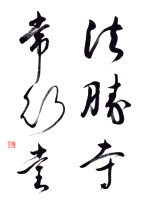 法勝寺
常行堂